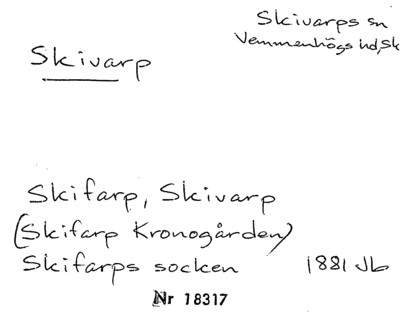 Skivarps sn
Vemmenhögs hd, Sk
Skivarp
Skifarp, Skivarp
(Skifarp Kronogården)
Skifarps socken 1881 Jb
Nr 18317